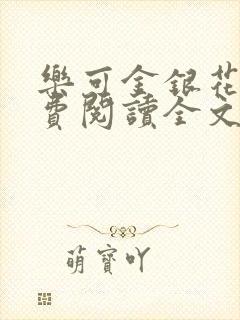 樂可金銀花
費閱讀全文
萌寶吖